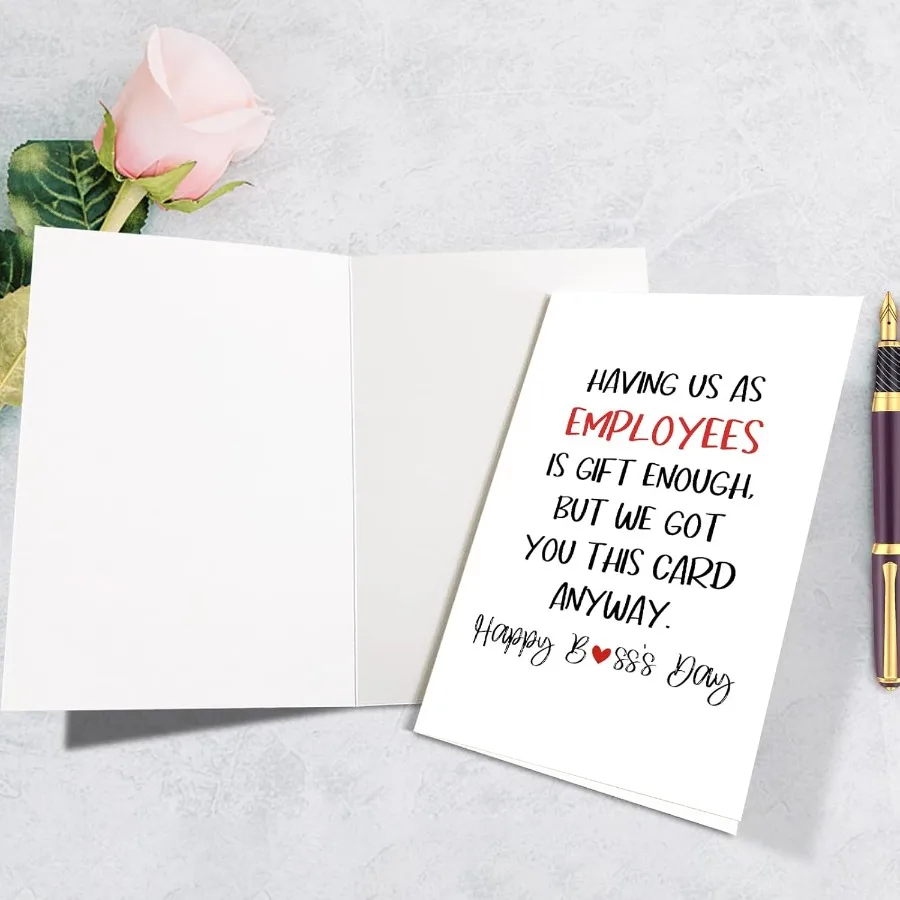 HAVING US AS
EMPLOYEES
IS GIFT ENOUGH,
BUT WE GOT
YOU THIS CARD
ANYWAY.
Happy B♥ss's Day